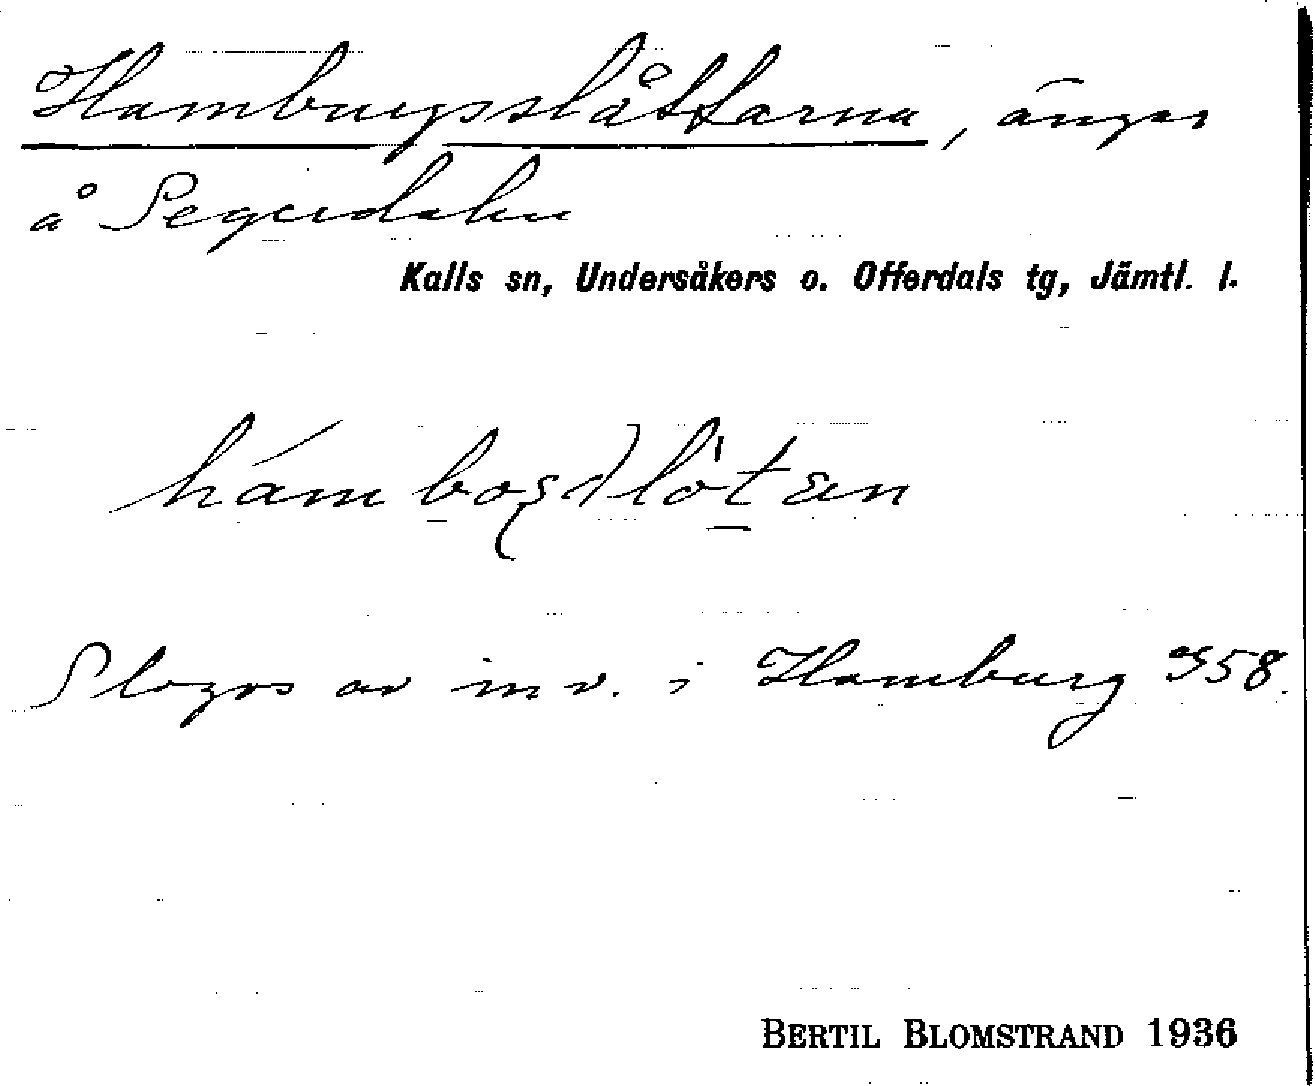 Hamburgsslåttarna, ängar
å Segerdalen
Kalls sn, Undersåkers o. Offerdals tg, Jämtl. l.
Slogos av inv. i Hamburg 958.
BERTIL BLOMSTRAND 1936